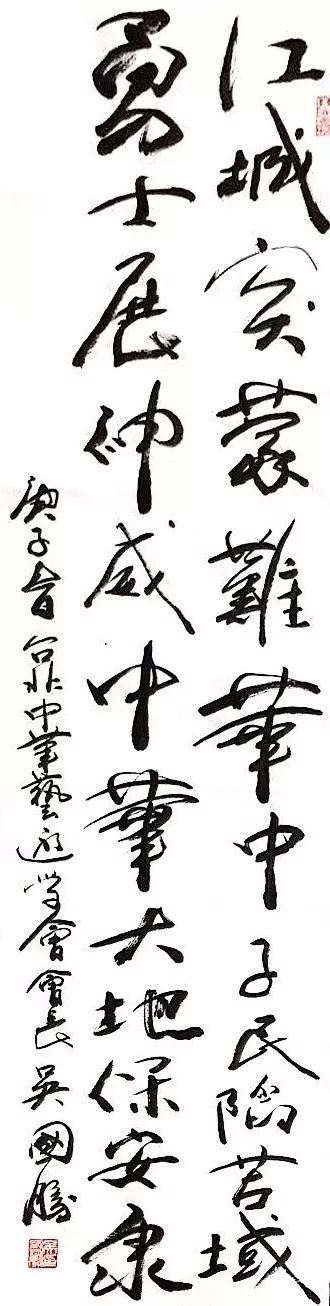 江城突蒙難華中子民陷苦域
勇士展神威中華大地保安康
庚子春 台北中華藝廊學會會長 吳國勝